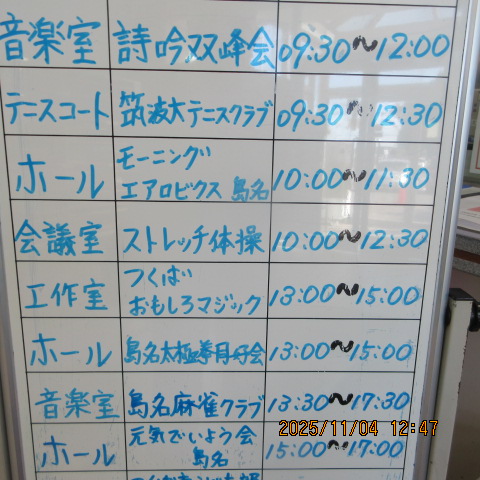 音楽室 詩吟双峰会 09:30~12:00
テニスコート 筑波大テニスクラブ 09:30~12:30
ホール モーニング
エアロビクス 島名 10:00~11:30
会議室 ストレッチ体操 10:00~12:30
工作室 つくばい
おもしろマジック 13:00~15:00
ホール 島名太極拳同好会 13:00~15:00
音楽室 島名麻雀クラブ 13:30~17:30
2025/11/04 12:47
ホール 元気でいよう会
島名 15:00~17:00